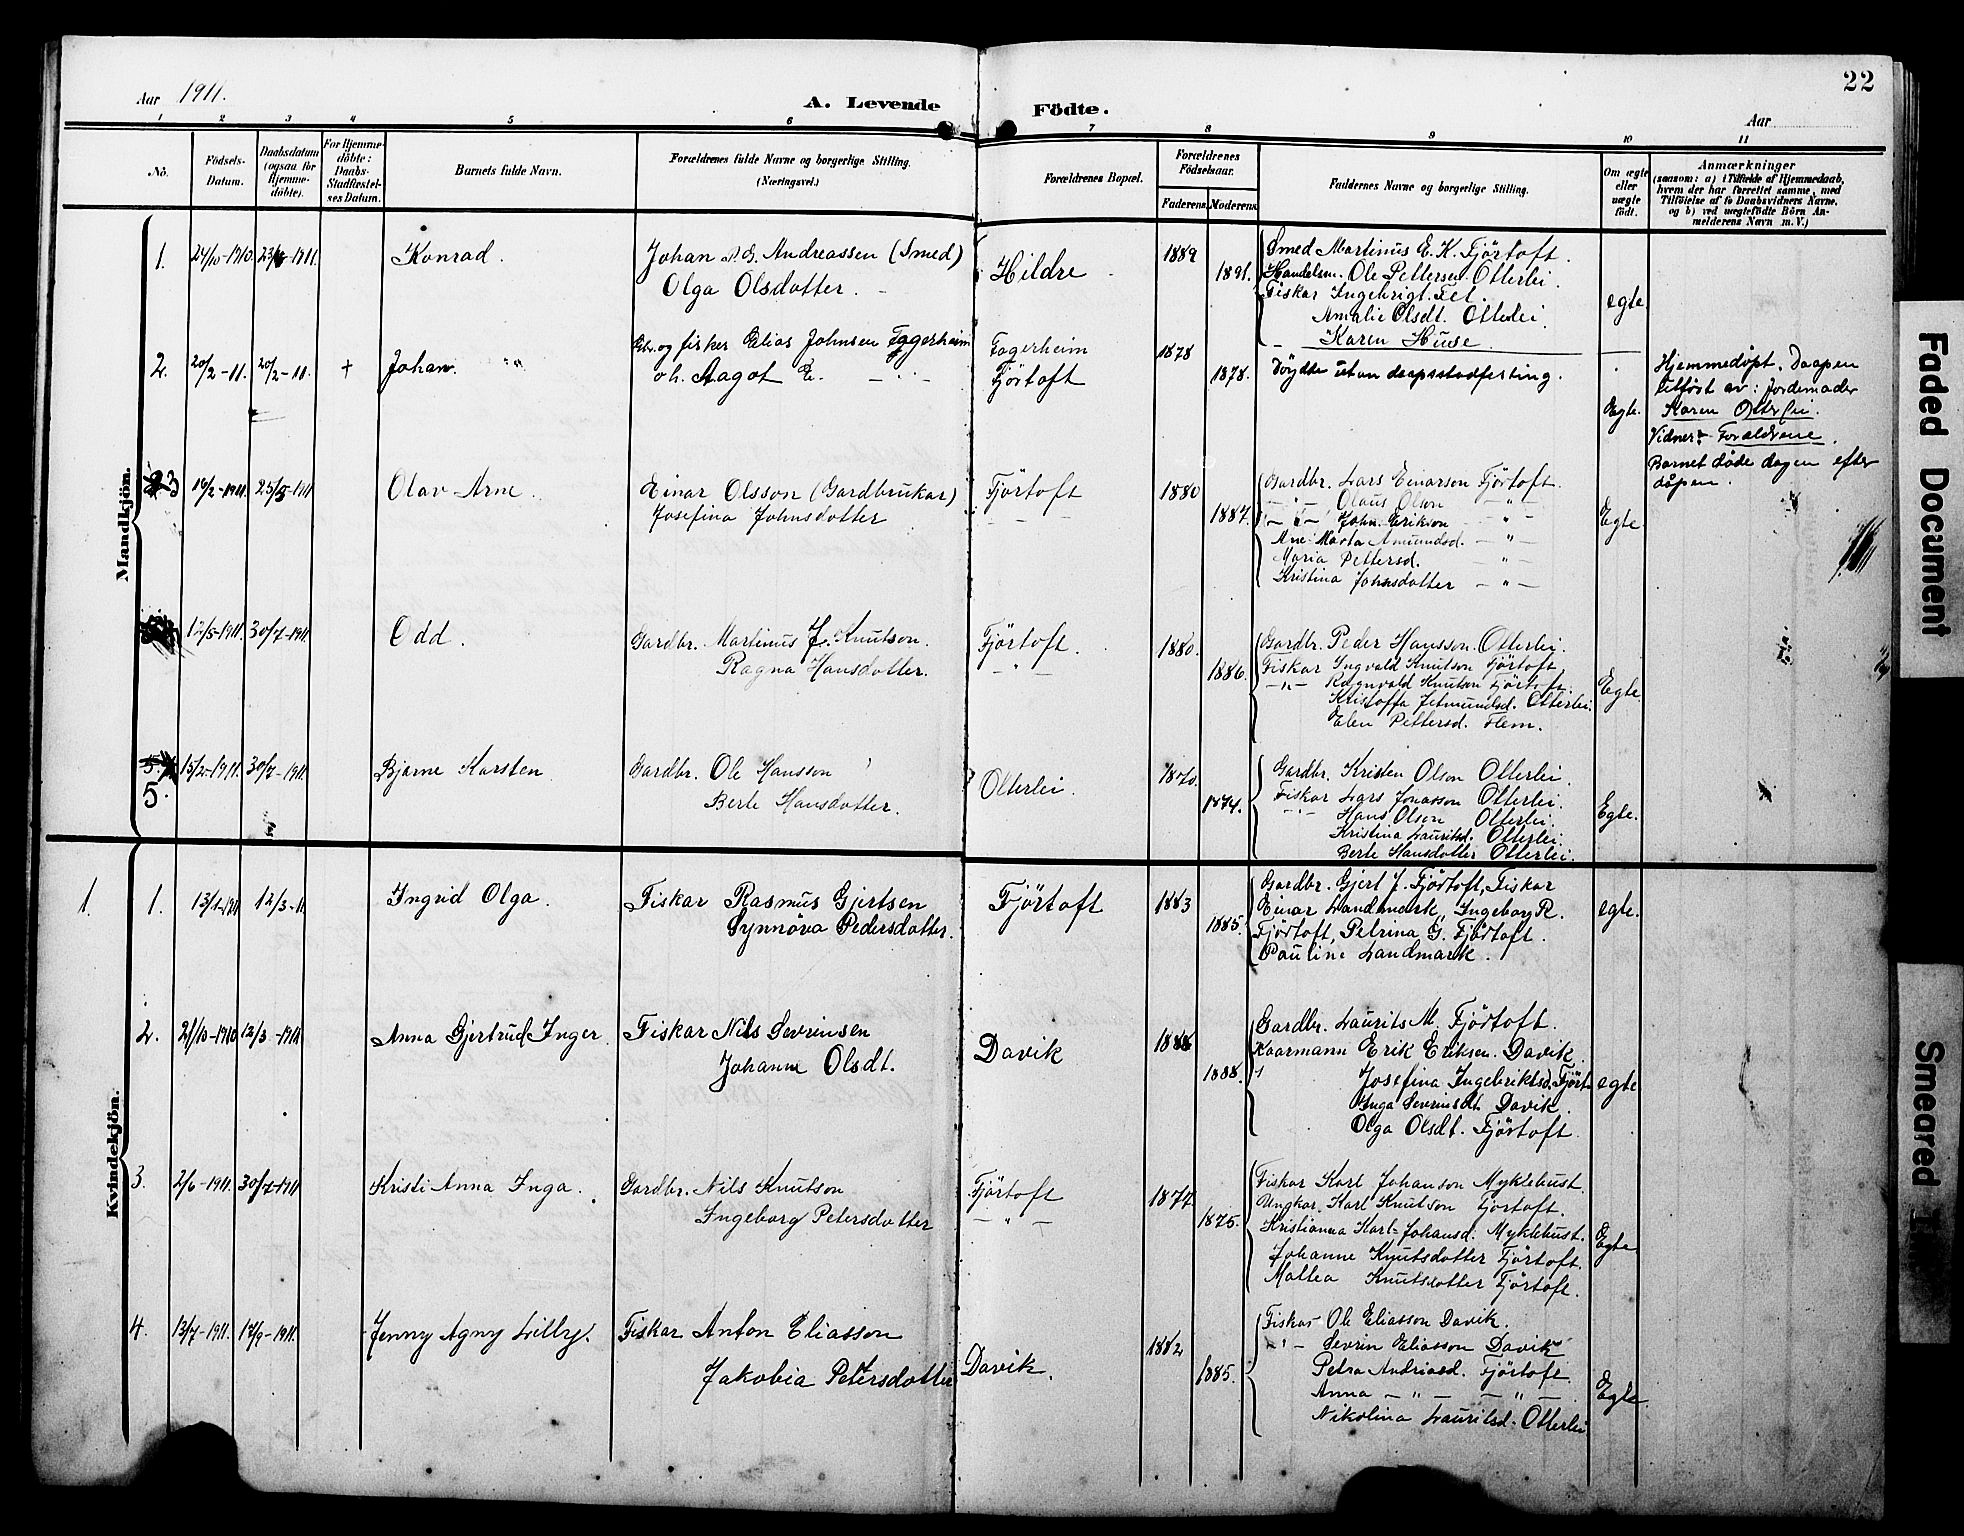 22
Aar 1911.
A. Levende Födte.
Aar
1 2 3 4 5 6 7 8 9 10 11
No. Födsels-Datum. Daabsdatum (ogsaa for Hjemmedöbte). For Hjemmedöbte: Daabs-Stadfæstelses Datum. Barnets fulde Navn. Forældrenes fulde Navne og borgerlige Stilling. (Næringsvei.) Forældrenes Bopæl. Forældrenes Födselsaar. Faderens. Moderens. Faddernes Navne og borgerlige Stilling. Om ægte eller uægte födt. Anmærkninger (saasom: a) i Tilfælde af Hjemmedaab, hvem der har forrettet samme, med Tilföielse af to Daabsvidners Navne, og b) ved uægtefödte Börn Anmelderens Navn m. V.)
Mandkjön.
1. 24/10-1910. Konrad. Johan P. G. Andreassen (Smed) Hildre 1889 Smed Martinus E. K. Fjörtoft.
Olga Olsdotter. 1891. Handelsm. Ole Pettersen Otterlei.
Fiskar Ingebrigt Fet. egte
Amalie Olsdt. Otterlei.
Karen Huse.
2. 20/2-11. 20/2-11. + Johan. Gbr. og fisker Elias Johnsen Fagerheim Fagerheim 1878
oh. Aagot E. Fjörtoft 1878. Döydde utan daapsstadfesting. Egte.
Hjemmedøpt. Daapen
utført av: Jordemoder
Karen Otterlei.
Vidner: Forældrene.
Barnet døde dagen efter
dåpen.
3 Olav Arne. Einar Olsson (Gardbrukar) Fjörtoft 1880 Gardbr. Lars Einarson Fjörtoft.
Josefina Johnsdotter 1887. Olaus Olson
John Erikson Egte.
Ane Marta Amundsd.
Maria Pettersd.
Kristina Johnsdotter
12/5-1911. 30/7-1911. Odd. Gardbr. Martinus J. Knutson. Fjörtoft. 1880. Gardbr. Peder Hansson. Otterlei.
Ragna Hansdotter. 1886. Fiskar Ingvald Knutson Fjörtoft,
Ragnvald Knutson Fjörtoft. Egte.
Kristoffa Jetmundsd. Otterlei.
Elen Pettersd. Flem.
5. 30/7-1911 Bjarne Karsten Gardbr. Ole Hansson Otterlei. 1870. Gardbr. Kristen Olson Otterlei.
Berte Hansdotter. 1874. Fiskar Lars Jonasson Otterlei.
Hans Olson Otterlei. Egte.
Kristina Lauritsd. Otterlei.
Berte Hansdotter Otterlei.
Kvindekjön.
1. 1. 12/3-11. Ingrid Olga. Fiskar Rasmus Gjertsen Fjörtoft 1883 Gardbr. Gjert J. Fjörtoft, Fiskar
Synnöva Pedersdotter. 1885. Einar Landmark, Ingeborg R. egte.
Fjörtoft, Petrina G. Fjörtoft.
Pauline Landmark.
2. 21/10-1910 12/3-1911 Anna Gjertrud Inger Fiskar Nils Sevrinsen Davik 1886 Gardbr. Laurits M. Fjörtoft.
Johanne Olsdt. 1888. Kaarmann Erik Eriksen. Davik.
Josefina Ingebriktsd. Fjört. egte
Inga Sevrinsdt. Davik.
Olga Olsdt. Fjörtoft.
3. 2/6-1911. 30/7-1911 Kristi Anna Inga. Gardbr. Nils Knutson Fjörtoft 1874 Fiskar Karl Johanson Myklebust.
Ingeborg Petersdotter 1875. Ungkar. Karl Knutson Fjörtoft.
Kristianna Karl-Johansd. Myklebust.
Johanne Knutsdotter Fjörtoft. Egte
Maltea Knutsdotter Fjörtoft.
4. 13/7-1911. 17/9-1911. Jenny Agny Lilly. Fiskar Anton Eliasson Davik. 1882 Fiskar Ole Eliasson Davik.
Jakobia Petersdotter 1885. Sevrin Eliasson Davik
Petra Andriasd. Fjörtoft
Anna Egte
Nikolina Lauritsd. Otterlei
Faded Document
Smeared